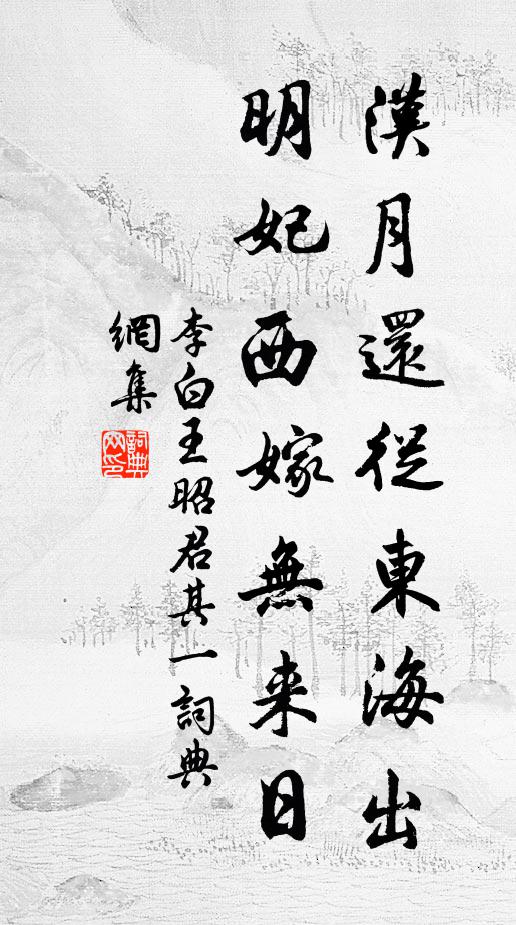 漢月還從東海出
明妃西嫁無来日
李白王昭君其一詞典
網集
詞典
网印